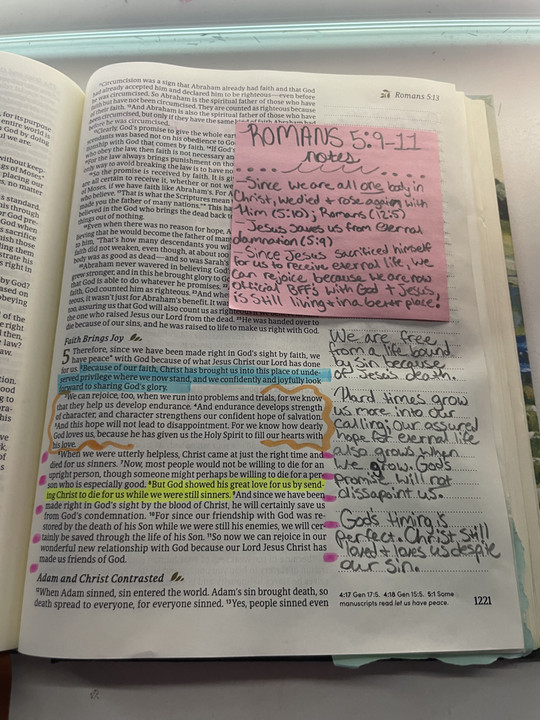 Romans 5:13
¹¹Circumcision was a sign that Abraham already had faith and that God
had already accepted him and declared him to be righteous—even before
he was circumcised. So Abraham is the spiritual father of those who have
faith but have not been circumcised. They are counted as righteous because
of their faith. ¹²And Abraham is also the spiritual father of those who have
been circumcised, but only if they have the same kind of faith Abraham had
before he was circumcised.
¹³Clearly, God's promise to give the whole ear
descendants was based not on his obedience to God
tionship with God that comes by faith. ¹⁴If God's
who obey the law, then faith is not necessary an
the law always brings punishment on tho
only way to avoid breaking the law is to have no
¹⁶So the promise is received by faith. It is gi
are all certain to receive it, whether or not we
of Moses, if we have faith like Abraham's. For A
who believe. ¹⁷That is what the Scriptures mean
made you the father of many nations." This ha
believed in the God who brings the dead back to
things out of nothing.
¹⁸Even when there was no reason for hope, A
ing that he would become the father of man
to him, "That's how many descendants you wil
faith did not weaken, even though, at about 100
body was as good as dead—and so was Sarah's
²⁰Abraham never wavered in believing God'
grew stronger, and in this he brought glory to G
that God is able to do whatever he promises. ²²
faith, God counted him as righteous. ²³And whe
eous, it wasn't just for Abraham's benefit. It wa
too, assuring us that God will also count us as right
the one who raised Jesus our Lord from the dead. ²⁵He was handed over to
die because of our sins, and he was raised to life to make us right with God.
ROMANS 5:9-11
notes
- Since we are all one body in
Christ, we died + rose again with
Him (5:10); Romans (12:5)
- Jesus saves us from eternal
damnation (5:9)
- Since Jesus sacrificed himself
for us to receive eternal life, we
can rejoice because we are now
official BFFs with God + Jesus
is still living + in a better place!
Faith Brings Joy
5 Therefore, since we have been made right in God's sight by faith, we
have peace* with God because of what Jesus Christ our Lord has done
for us. ²Because of our faith, Christ has brought us into this place of unde-
served privilege where we now stand, and we confidently and joyfully look
forward to sharing God's glory.
³We can rejoice, too, when we run into problems and trials, for we know
that they help us develop endurance. ⁴And endurance develops strength
of character, and character strengthens our confident hope of salvation.
⁵And this hope will not lead to disappointment. For we know how dearly
God loves us, because he has given us the Holy Spirit to fill our hearts with
his love.
⁶When we were utterly helpless, Christ came at just the right time and
died for us sinners. ⁷Now, most people would not be willing to die for an
upright person, though someone might perhaps be willing to die for a per-
son who is especially good. ⁸But God showed his great love for us by send-
ing Christ to die for us while we were still sinners. ⁹And since we have been
made right in God's sight by the blood of Christ, he will certainly save us
from God's condemnation. ¹⁰For since our friendship with God was re-
stored by the death of his Son while we were still his enemies, we will cer-
tainly be saved through the life of his Son. ¹¹So now we can rejoice in our
wonderful new relationship with God because our Lord Jesus Christ has
made us friends of God.
Adam and Christ Contrasted
¹²When Adam sinned, sin entered the world. Adam's sin brought death, so
death spread to everyone, for everyone sinned. ¹³Yes, people sinned even
We are free
from a life bound
by sin because
of Jesus' death.
Hard times grow
us more into our
calling; our assured
hope for eternal life
also grows when
we grow. God's
promise will not
dissapoint us.
God's timing is
perfect. Christ still
loved + loves us despite
our sin.
4:17 Gen 17:5. 4:18 Gen 15:5. 5:1 Some
manuscripts read let us have peace.
1221